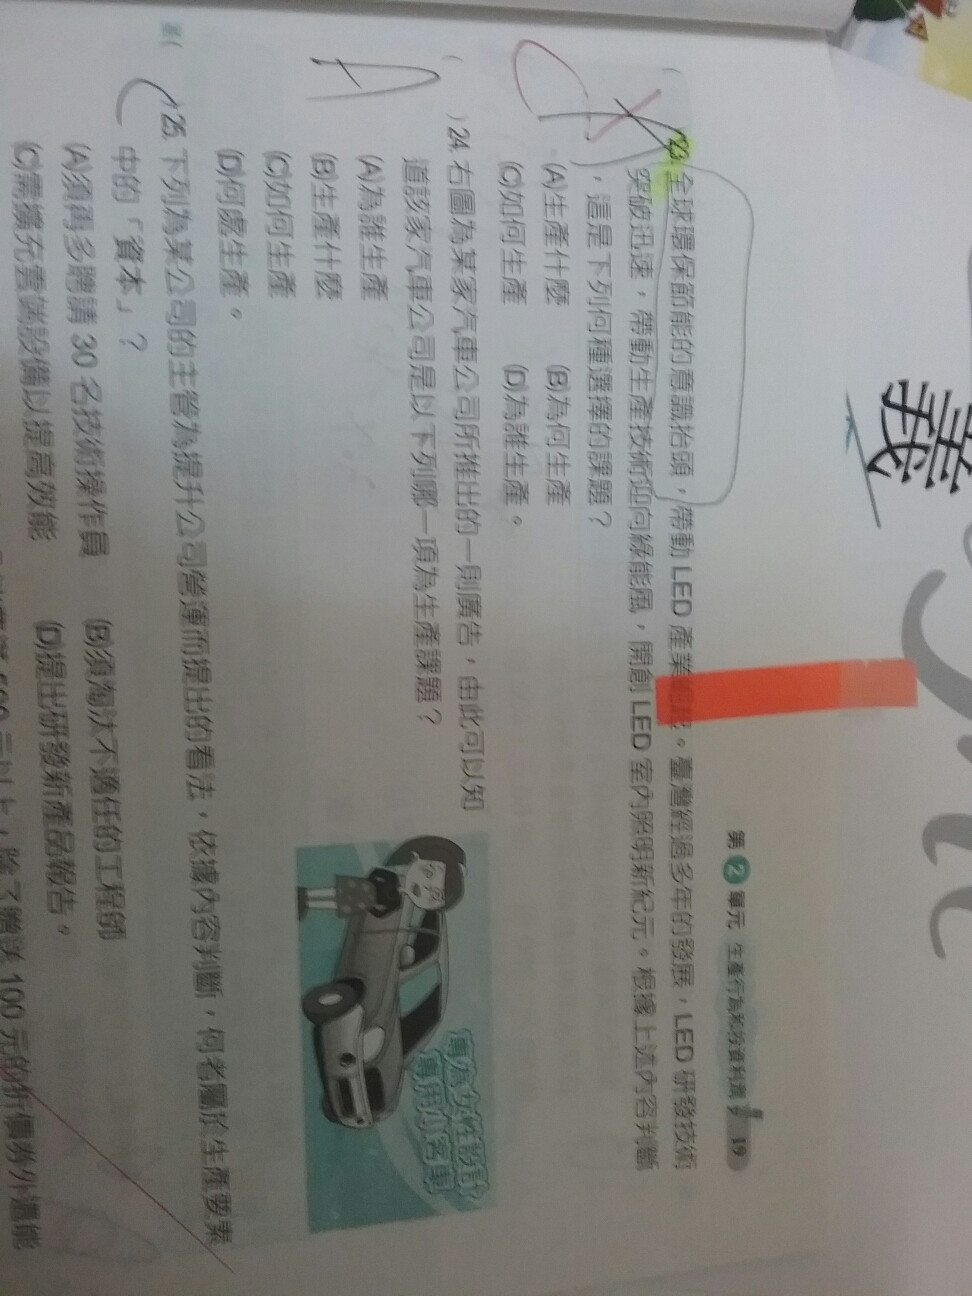 義
第2單元 生產行為和投資利潤 19
23. 全球環保節能的意識抬頭，帶動 LED 產業 。臺灣經過多年的發展，LED 研發技術
突破迅速，帶動生產技術迎向綠能風，開創 LED 室內照明新紀元。根據上述內容判斷
，這是下列何種選擇的課題？
(A)生產什麼 (B)為何生產
(C)如何生產 (D)為誰生產。
A
( )24. 右圖為某家汽車公司所推出的一則廣告，由此可以知
道該家汽車公司是以下列哪一項為生產課題？
(A)為誰生產
(B)生產什麼
(C)如何生產
(D)何處生產。
專為女性設計
專用小客車
C
( )25. 下列為某公司的主管為提升公司營運而提出的看法，依據內容判斷，何者屬於生產要素
中的「資本」？
(A)須再多聘請 30 名技術操作員 (B)須淘汰不適任的工程師
(C)需擴充雲端設備以提高效能 (D)提出研發新產品報告。
500 元以上，除了贈送 100 元的折價券外還能